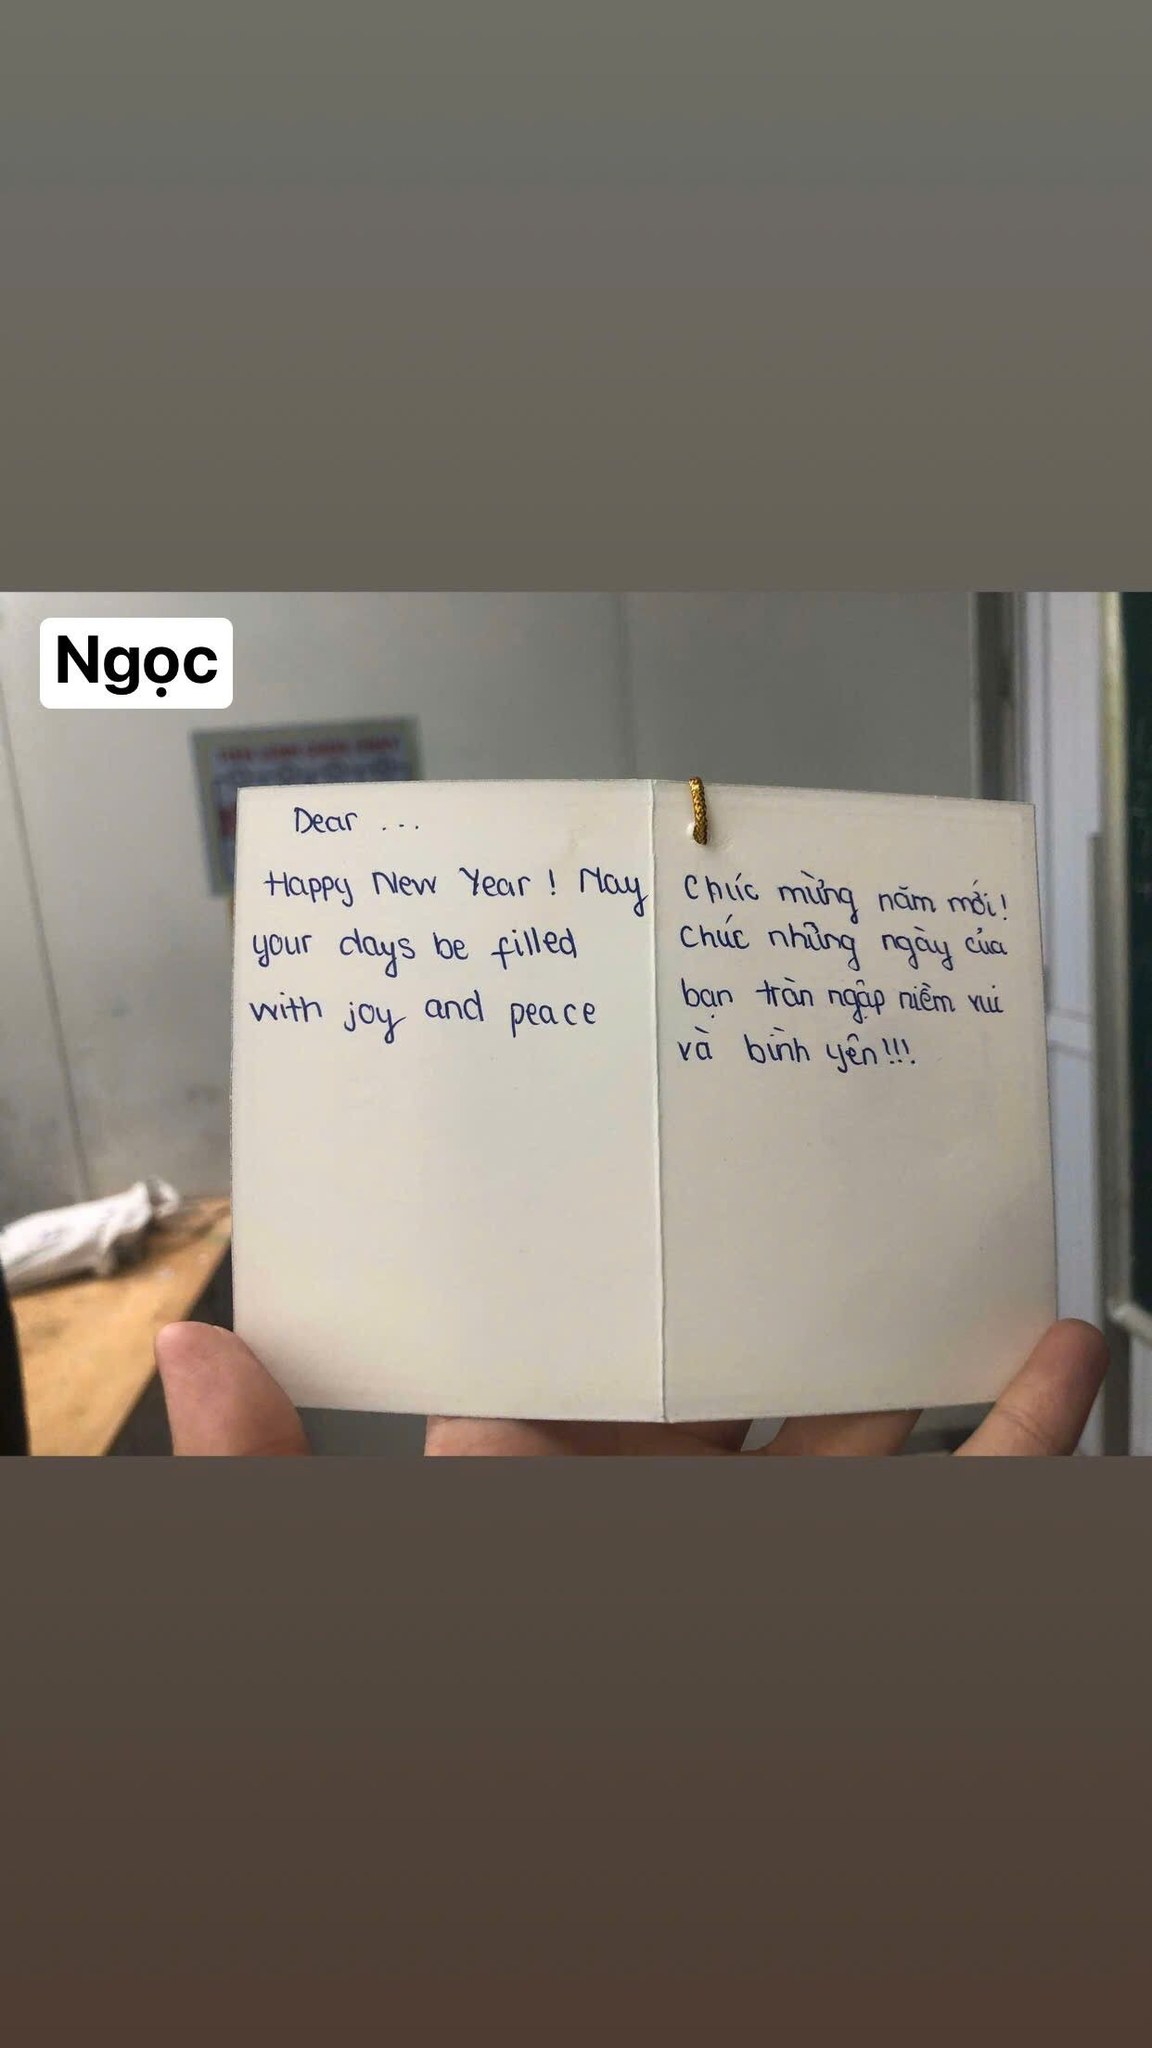 Ngọc
Dear ...
Happy New Year ! May
your days be filled
with joy and peace
Chúc mừng năm mới!
Chúc những ngày của
bạn tràn ngập niềm vui
và bình yên!!!